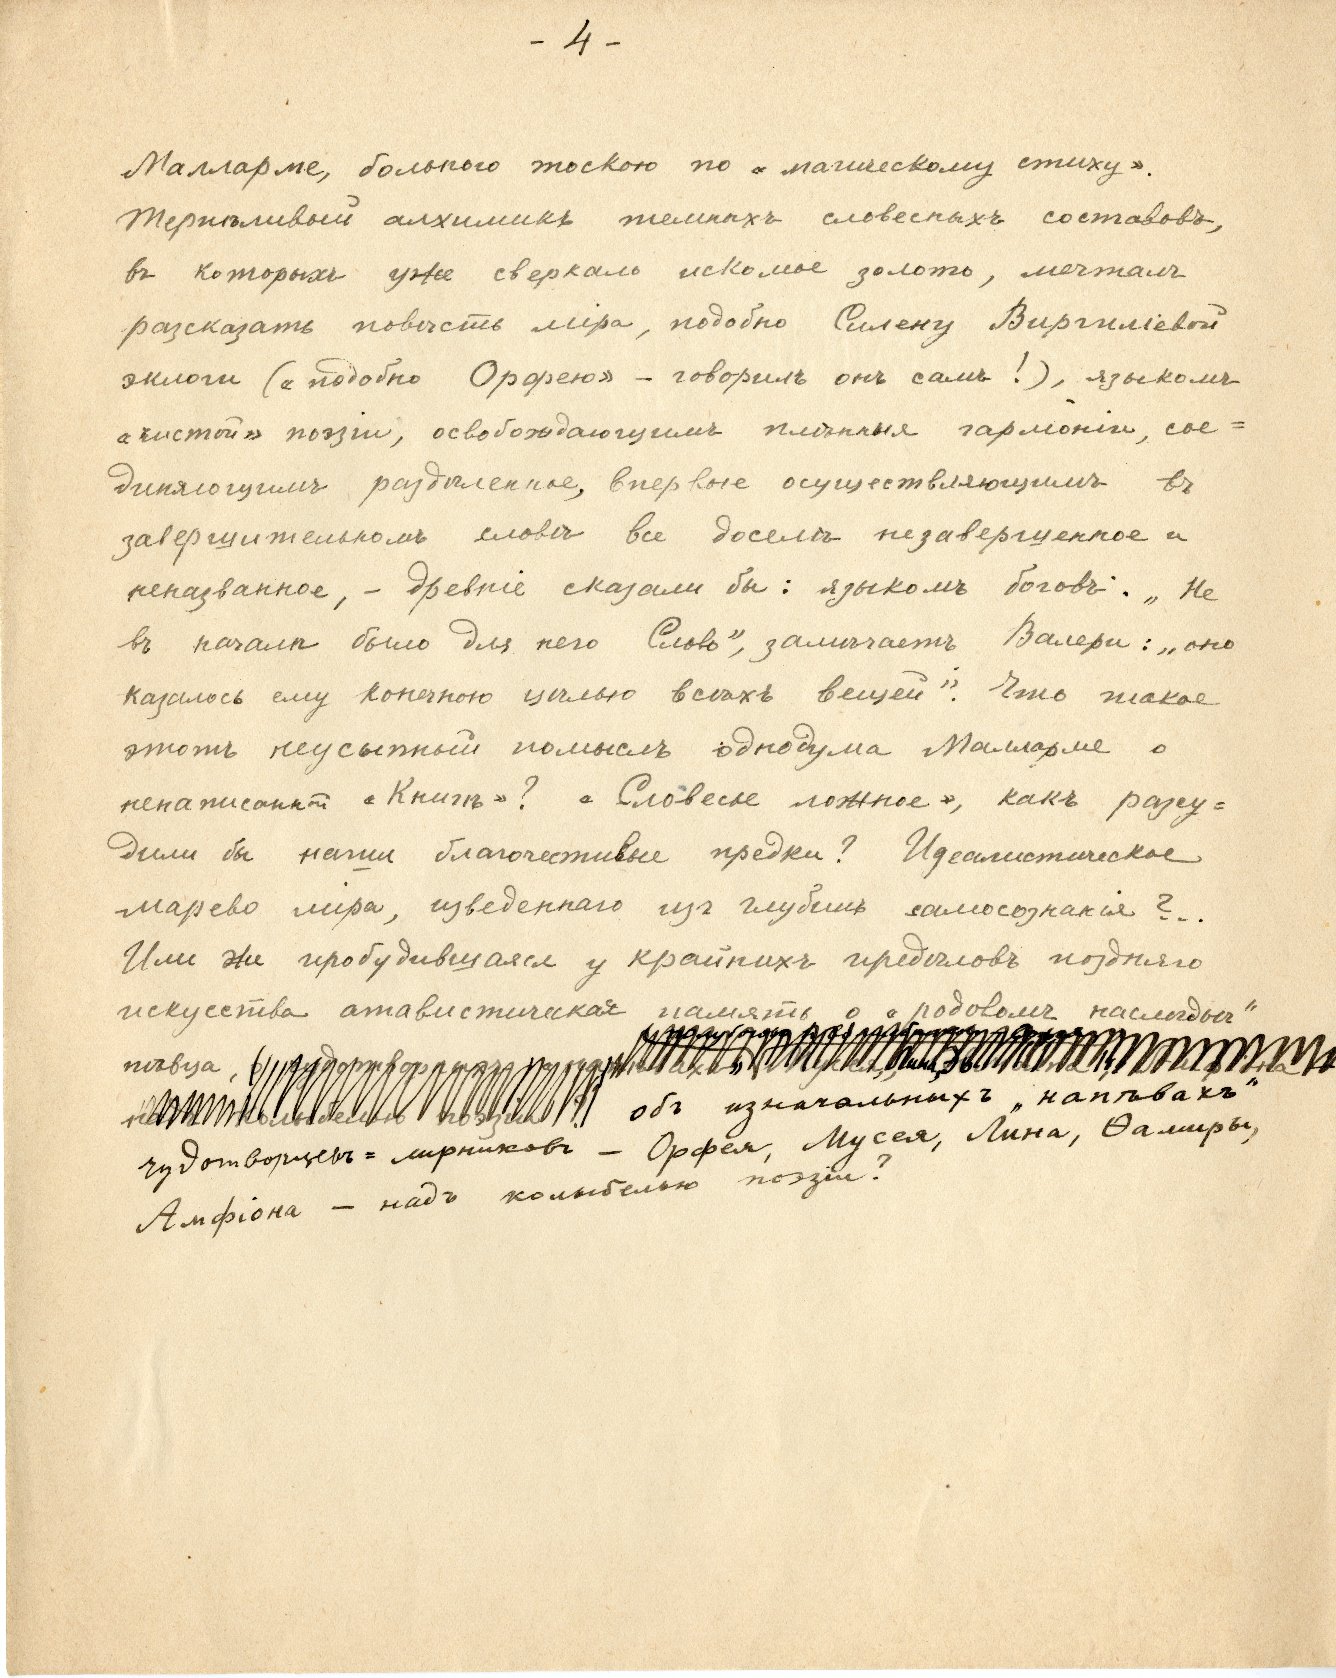 - 4 -
Малларме, больного тоскою по «магическому стиху».
Терпѣливый алхимикъ темныхъ словесныхъ составовъ,
въ которыхъ уже сверкало искомое золото, мечталъ
разсказать повѣсть міра, подобно Силену Виргиліевой
эклоги («подобно Орфею» – говорилъ онъ самъ!), языкомъ
«чистой» поэзіи, освобождающимъ плѣнныя гармоніи, сое=
диняющимъ раздѣленное, впервые осуществляющимъ въ
завершительномъ словѣ все доселѣ незавершенное и
неназванное, – древніе сказали бы: языкомъ боговъ. „Не
въ началѣ было для него Слово", замѣчаетъ Валери: „оно
казалось ему конечною цѣлью всѣхъ вещей". Что такое
этотъ неусыпный помыслъ однодума Малларме о
ненаписанной «Книгѣ»? «Словесье ложное», какъ разсу=
дили бы наши благочестивые предки? Идеалистическое
марево міра, изведеннаго изъ глубинъ самосознанія?..
Или же пробудившаяся у крайнихъ предѣловъ поздняго
искусства атавистическая память о «родовомъ наслѣдьи"
пѣвца,
колыбелью поэзіи? объ изначальныхъ „напѣвахъ"
чудотворцевъ=лирниковъ – Орфея, Мусея, Лина, Ѳамиры,
Амфіона – надъ колыбелью поэзіи?